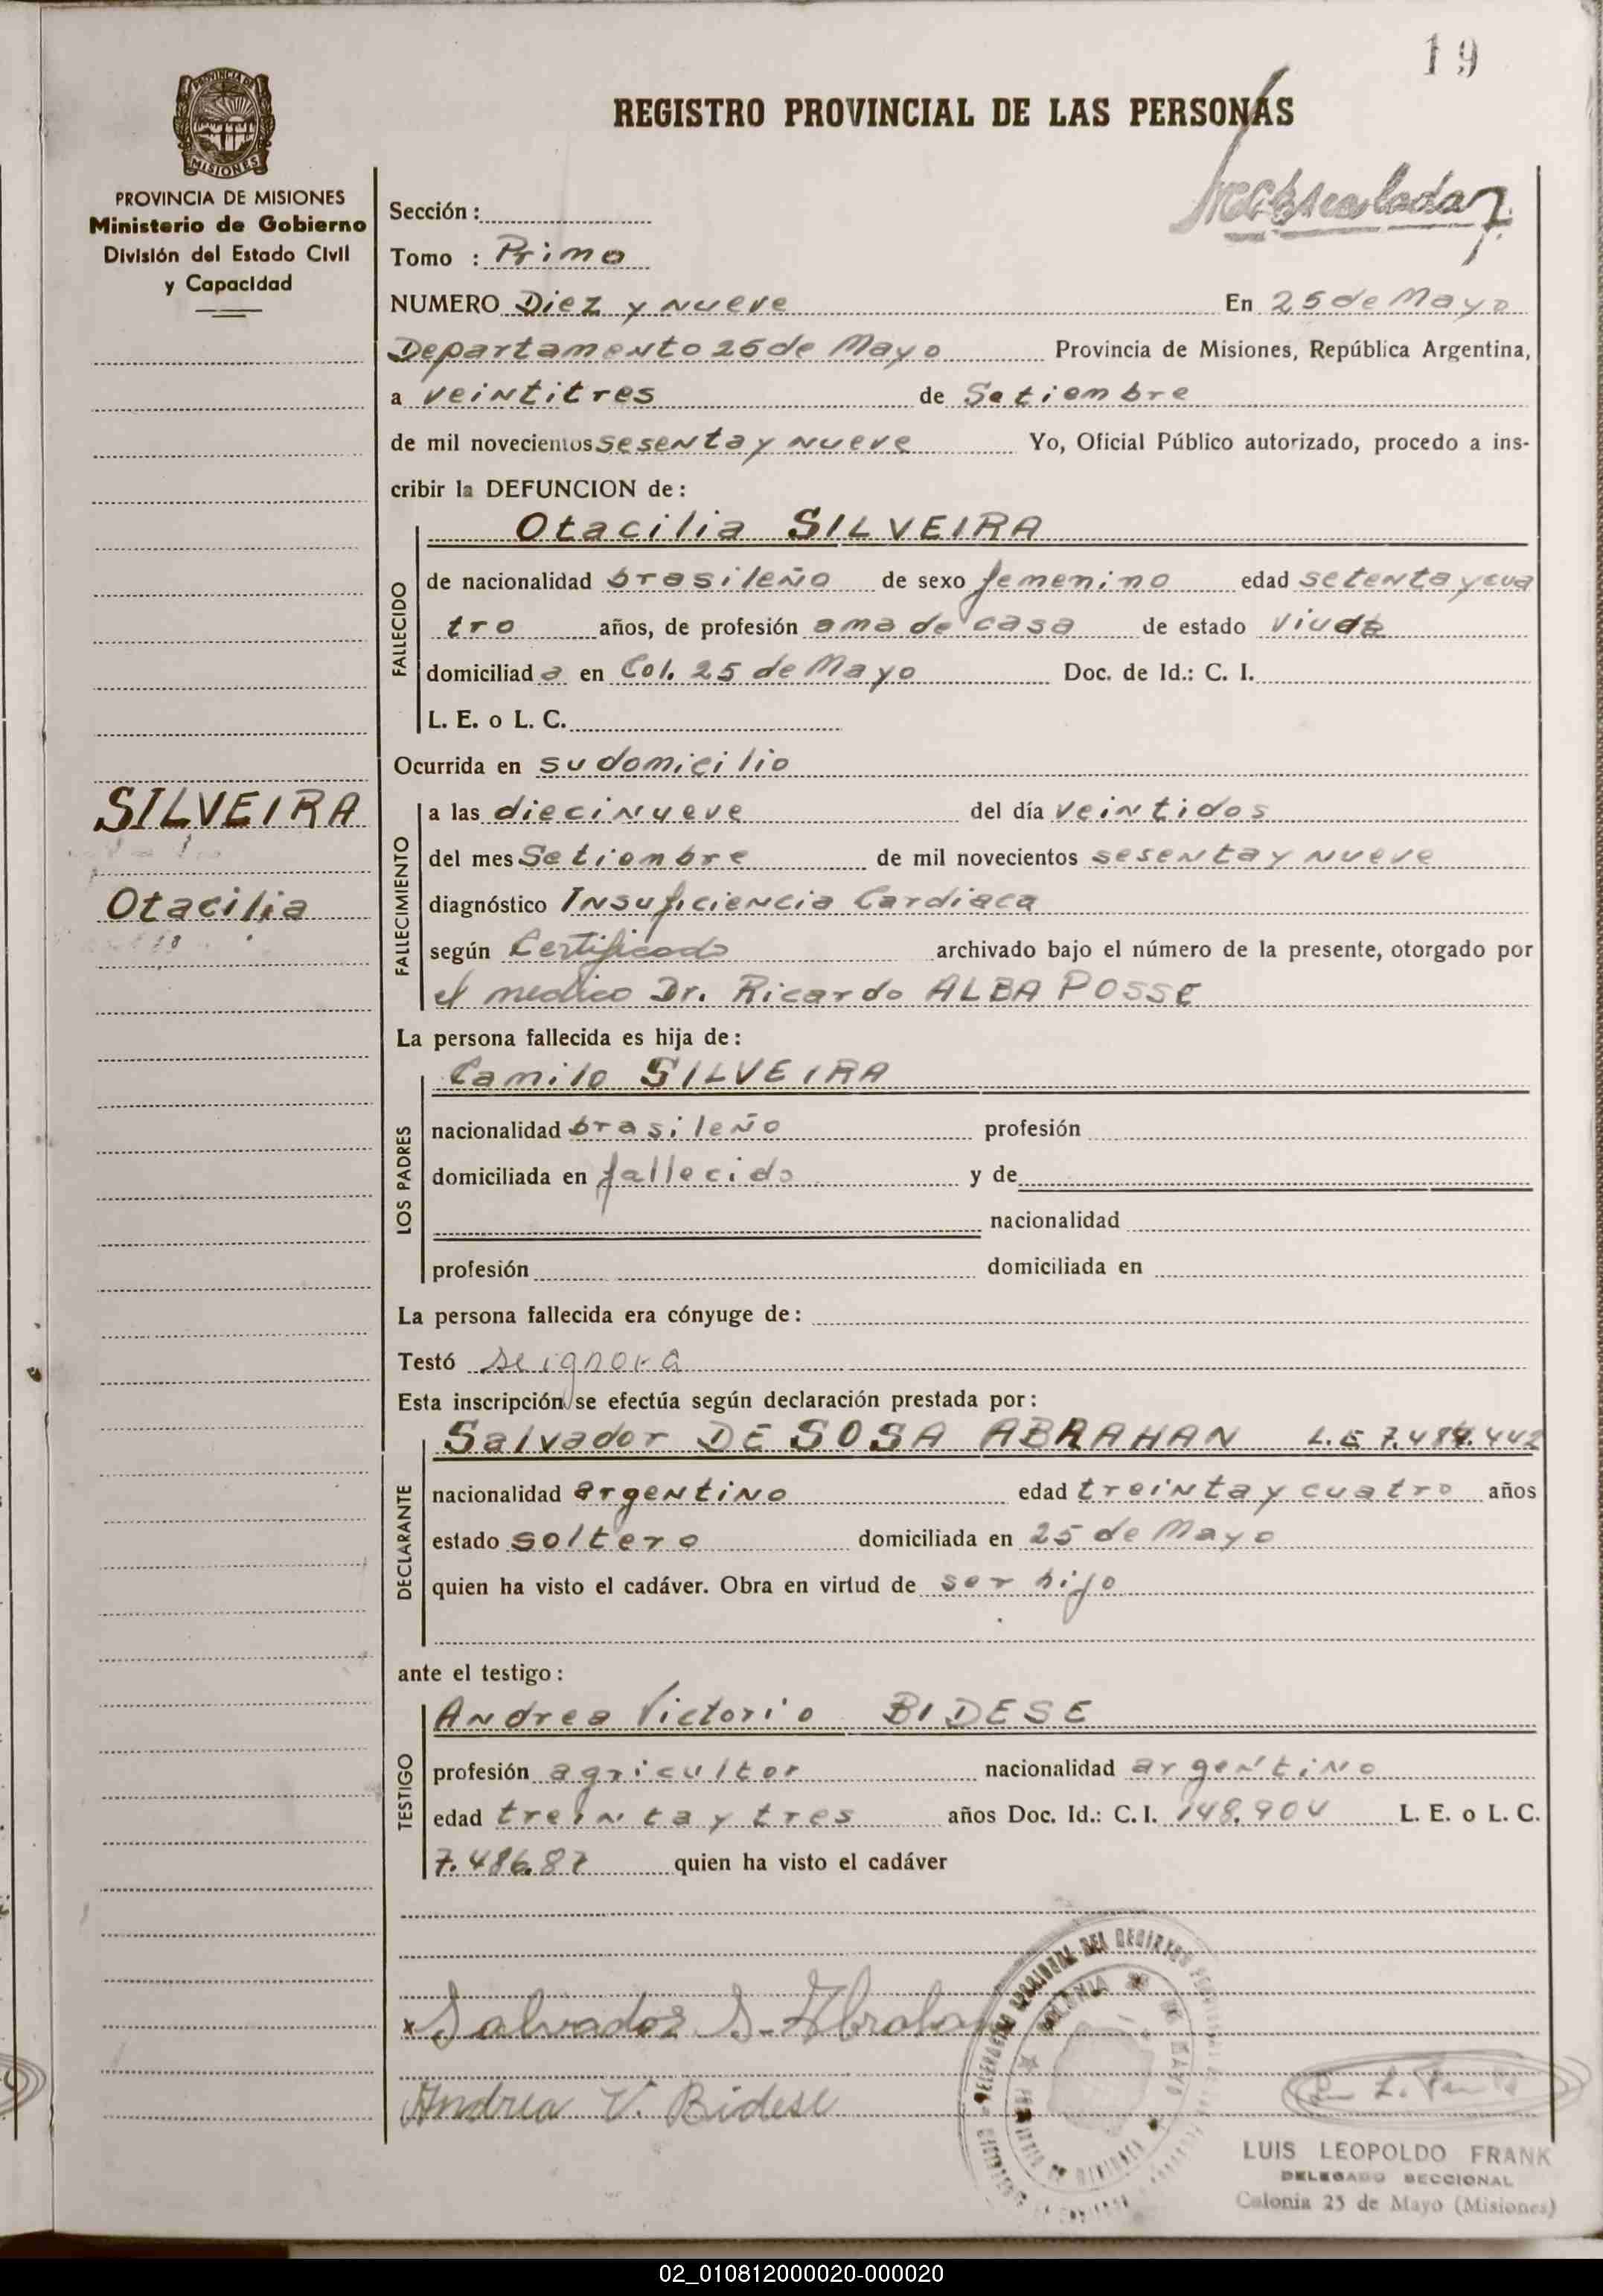 19
REGISTRO PROVINCIAL DE LAS PERSONAS
PROVINCIA DE
MISIONES
PROVINCIA DE MISIONES
Ministerio de Gobierno
División del Estado Civil
y Capacidad
Sección:
Tomo : Primo
NUMERO Diez y nueve En 25 de Mayo
Departamento 25 de Mayo Provincia de Misiones, República Argentina,
a veintitres de Setiembre
de mil novecientos sesenta y nueve Yo, Oficial Público autorizado, procedo a ins-
cribir la DEFUNCION de:
Otacilia SILVEIRA
FALLECIDO
de nacionalidad brasileño de sexo femenino edad setenta y cua
tro años, de profesión ama de casa de estado viuda
domiciliad a en Col. 25 de Mayo Doc. de Id.: C. I.
L. E. o L. C.
Ocurrida en su domicilio
SILVEIRA
Otacilia
FALLECIMIENTO
a las diecinueve del día veintidos
del mes Setiembre de mil novecientos sesenta y nueve
diagnóstico Insuficiencia Cardiaca
según Certificado archivado bajo el número de la presente, otorgado por
el medico Dr. Ricardo ALBA POSSE
La persona fallecida es hija de:
Camilo SILVEIRA
LOS PADRES
nacionalidad brasileño profesión
domiciliada en fallecido y de
nacionalidad
profesión domiciliada en
La persona fallecida era cónyuge de:
Testó se ignora
Esta inscripción se efectúa según declaración prestada por:
Salvador DE SOSA ABRAHAN L.E 7.484.442
DECLARANTE
nacionalidad argentino edad treinta y cuatro años
estado soltero domiciliada en 25 de Mayo
quien ha visto el cadáver. Obra en virtud de ser hijo
ante el testigo:
Andrea Victorio BIDESE
TESTIGO
profesión agricultor nacionalidad argentino
edad treinta y tres años Doc. Id.: C. I. 148.904 L. E. o L. C.
7.486.87 quien ha visto el cadáver
x Salvador S. Abrahan
Andrea V. Bidese
LUIS LEOPOLDO FRANK
DELEGADO SECCIONAL
Colonia 25 de Mayo (Misiones)
02_010812000020-000020